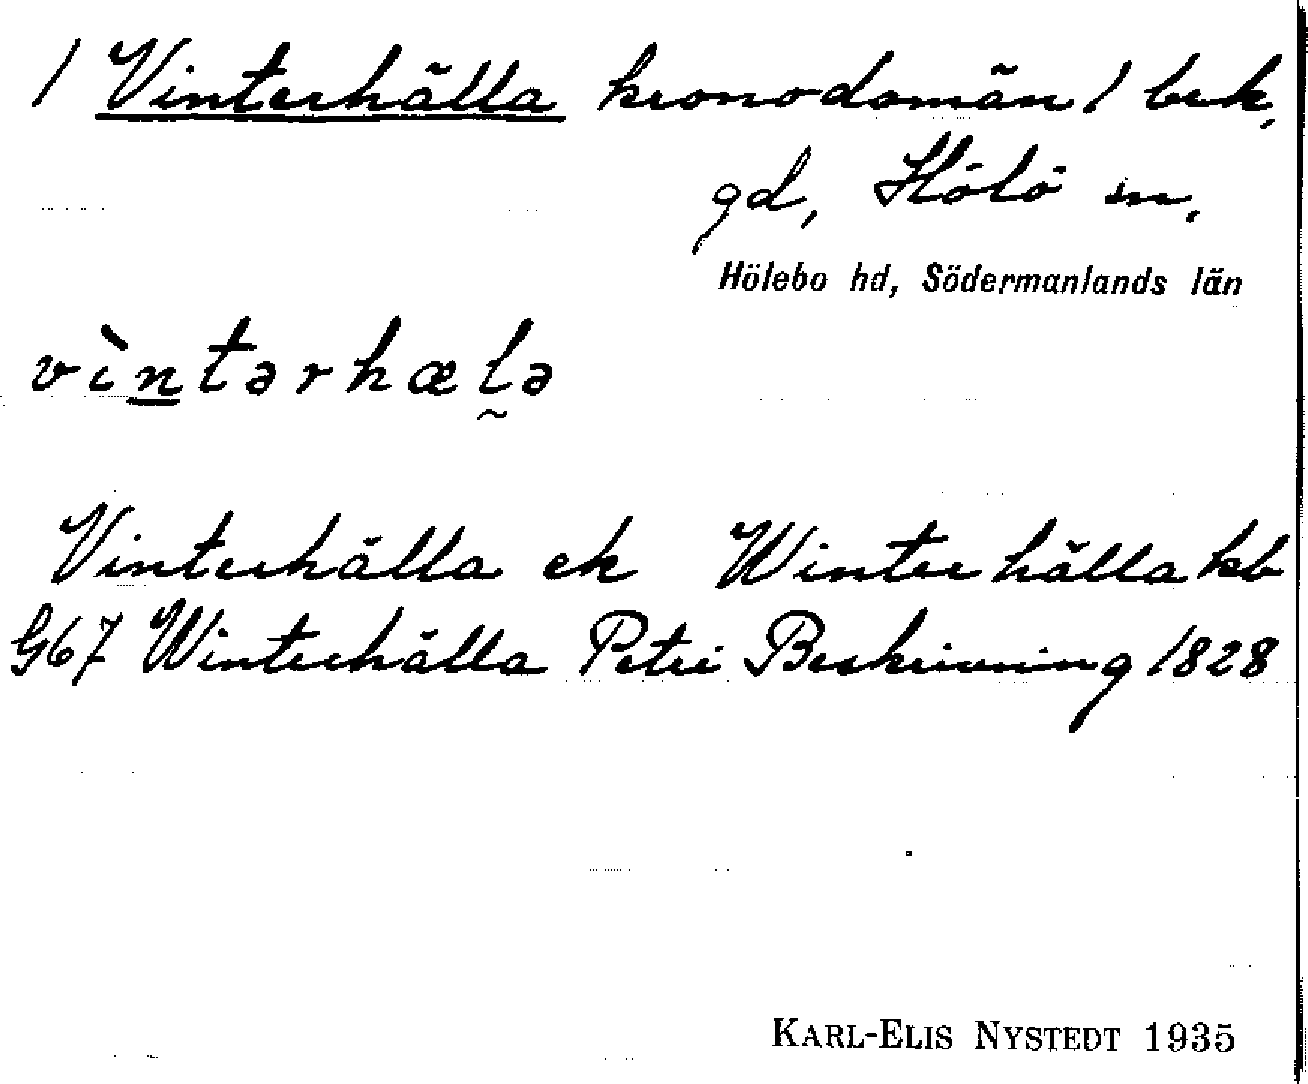 / Vinterhälla kronodomän / brk,
gd, Hölö sn,
Hölebo hd, Södermanlands län
vìn̲tərhæl̰ə
Vinterhälla ek Winterhälla kb
G67 Winterhälla Petri Beskrivning 1828
KARL-ELIS NYSTEDT 1935